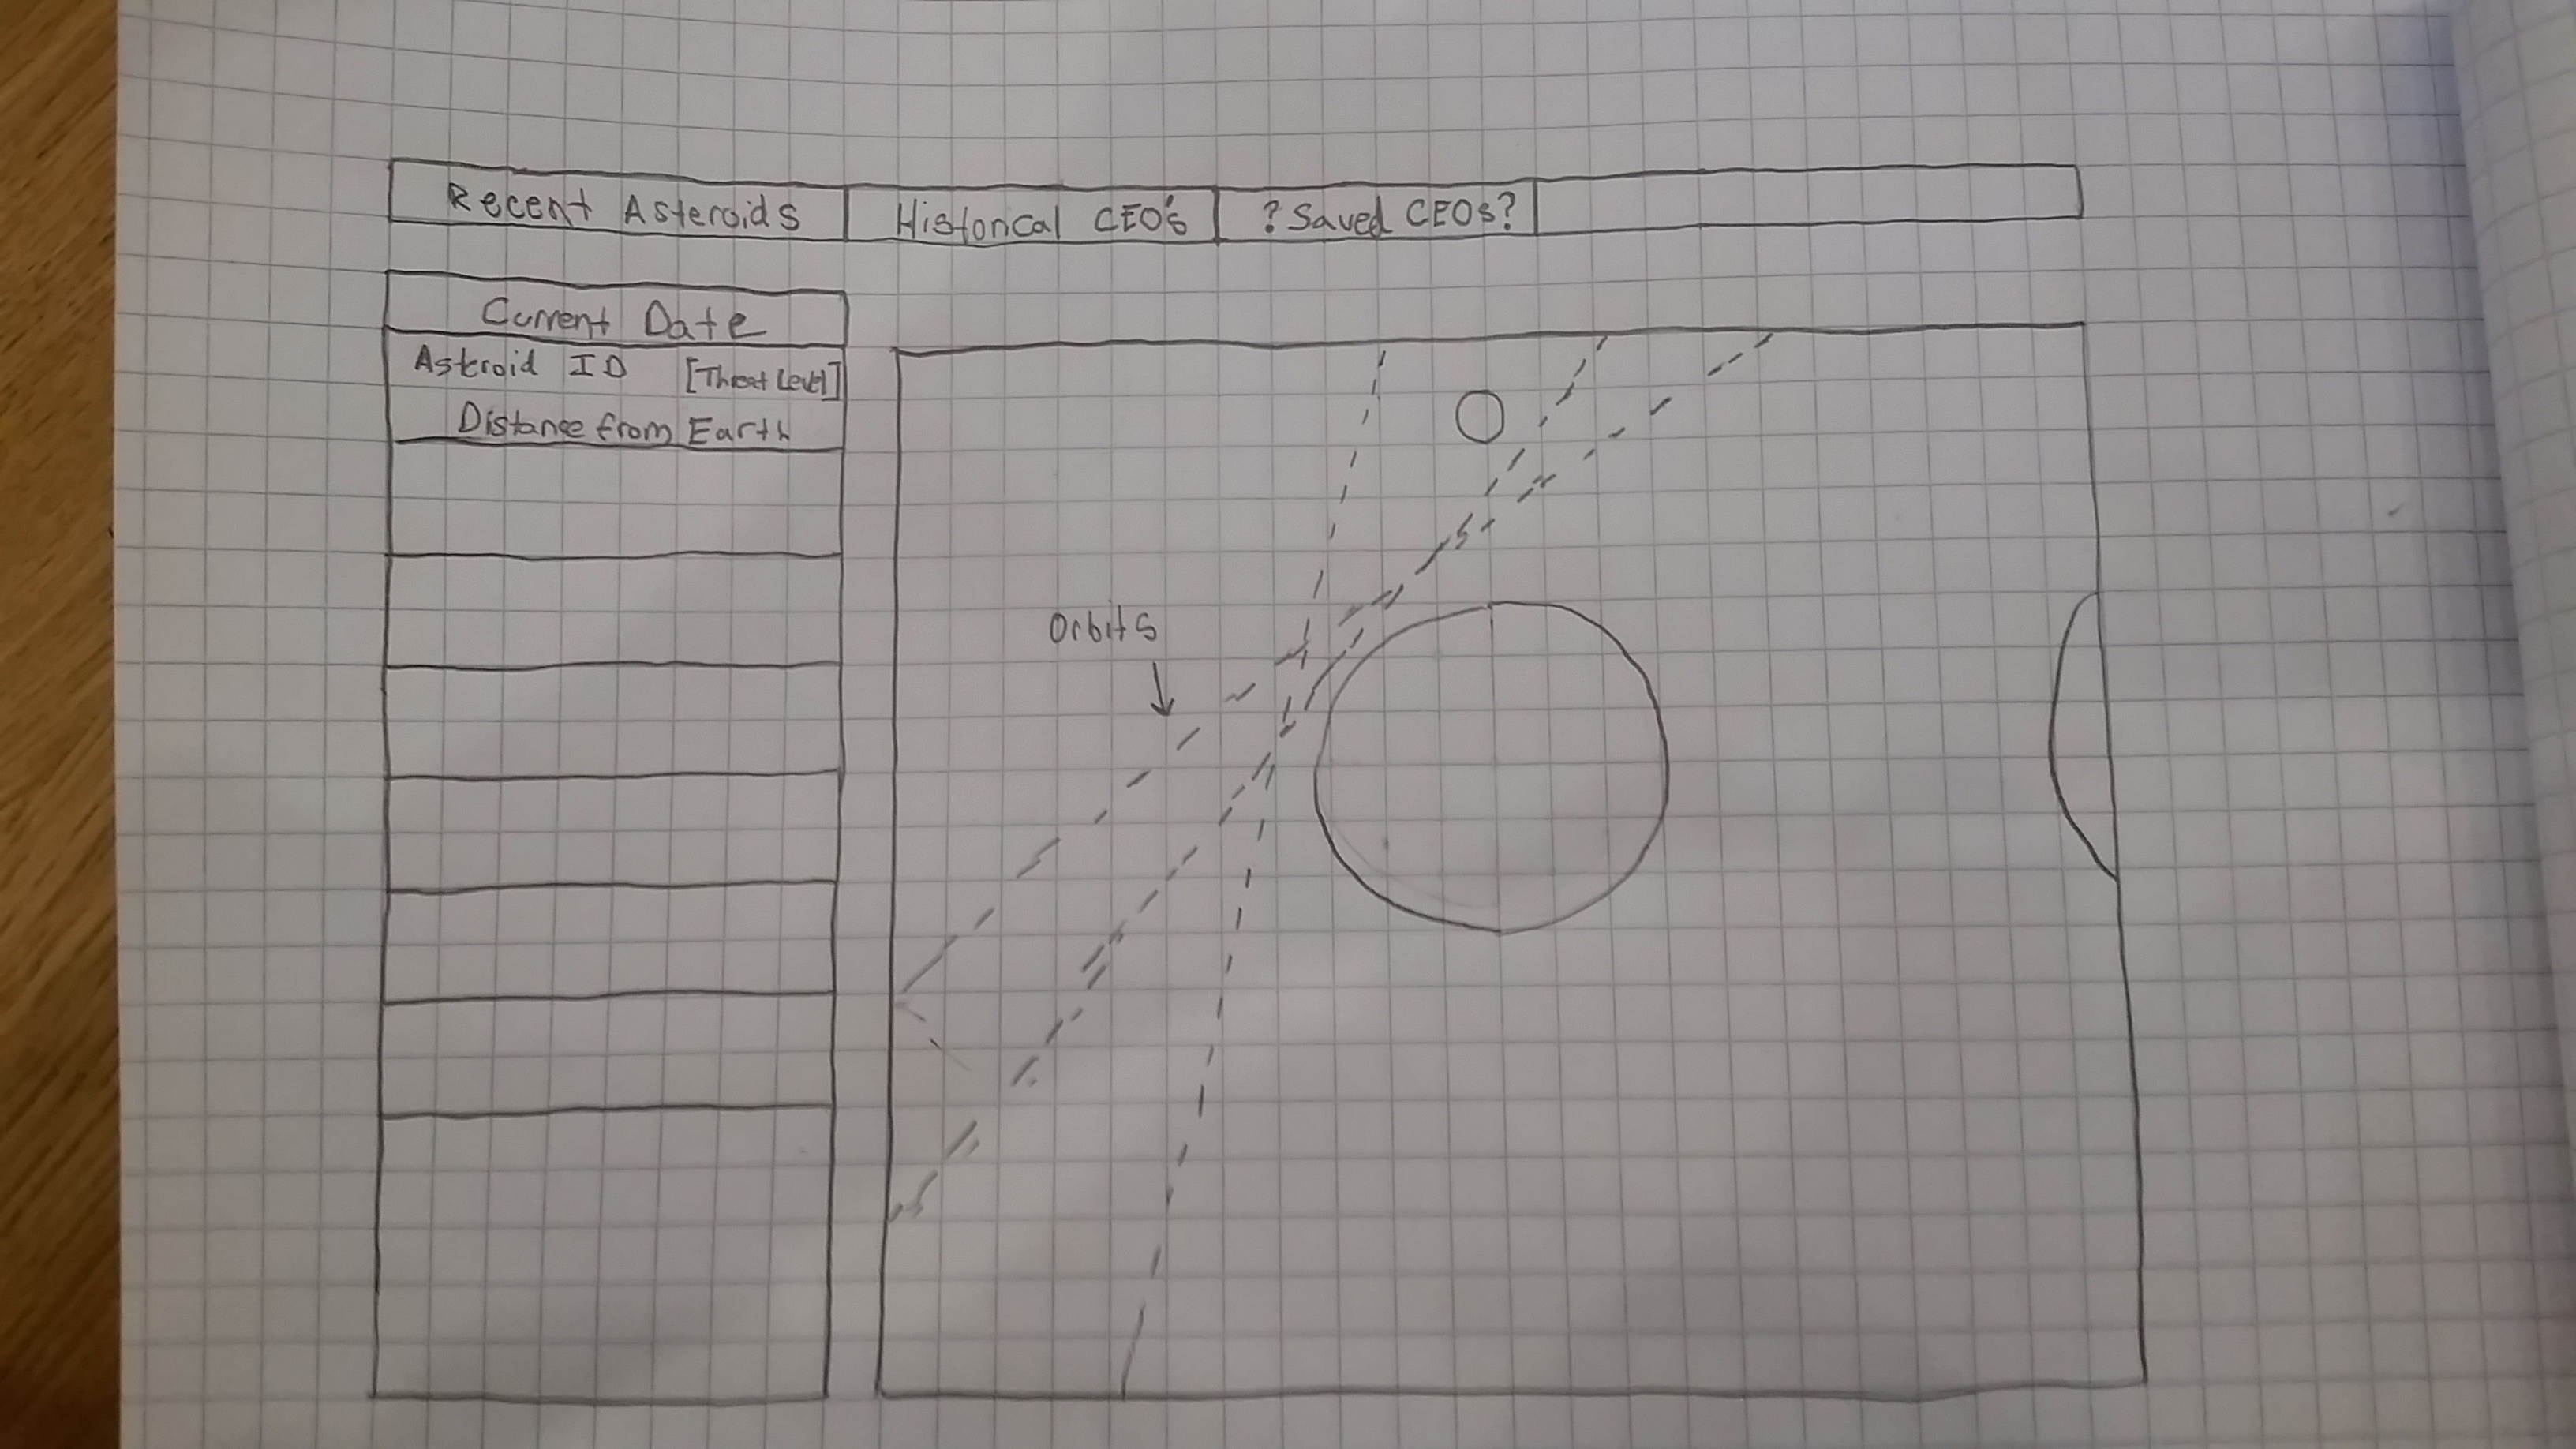 Recent Asteroids
Historical CEO's
?Saved CEOs?
Current Date
Asteroid ID [Threat Level]
Distance from Earth
Orbits